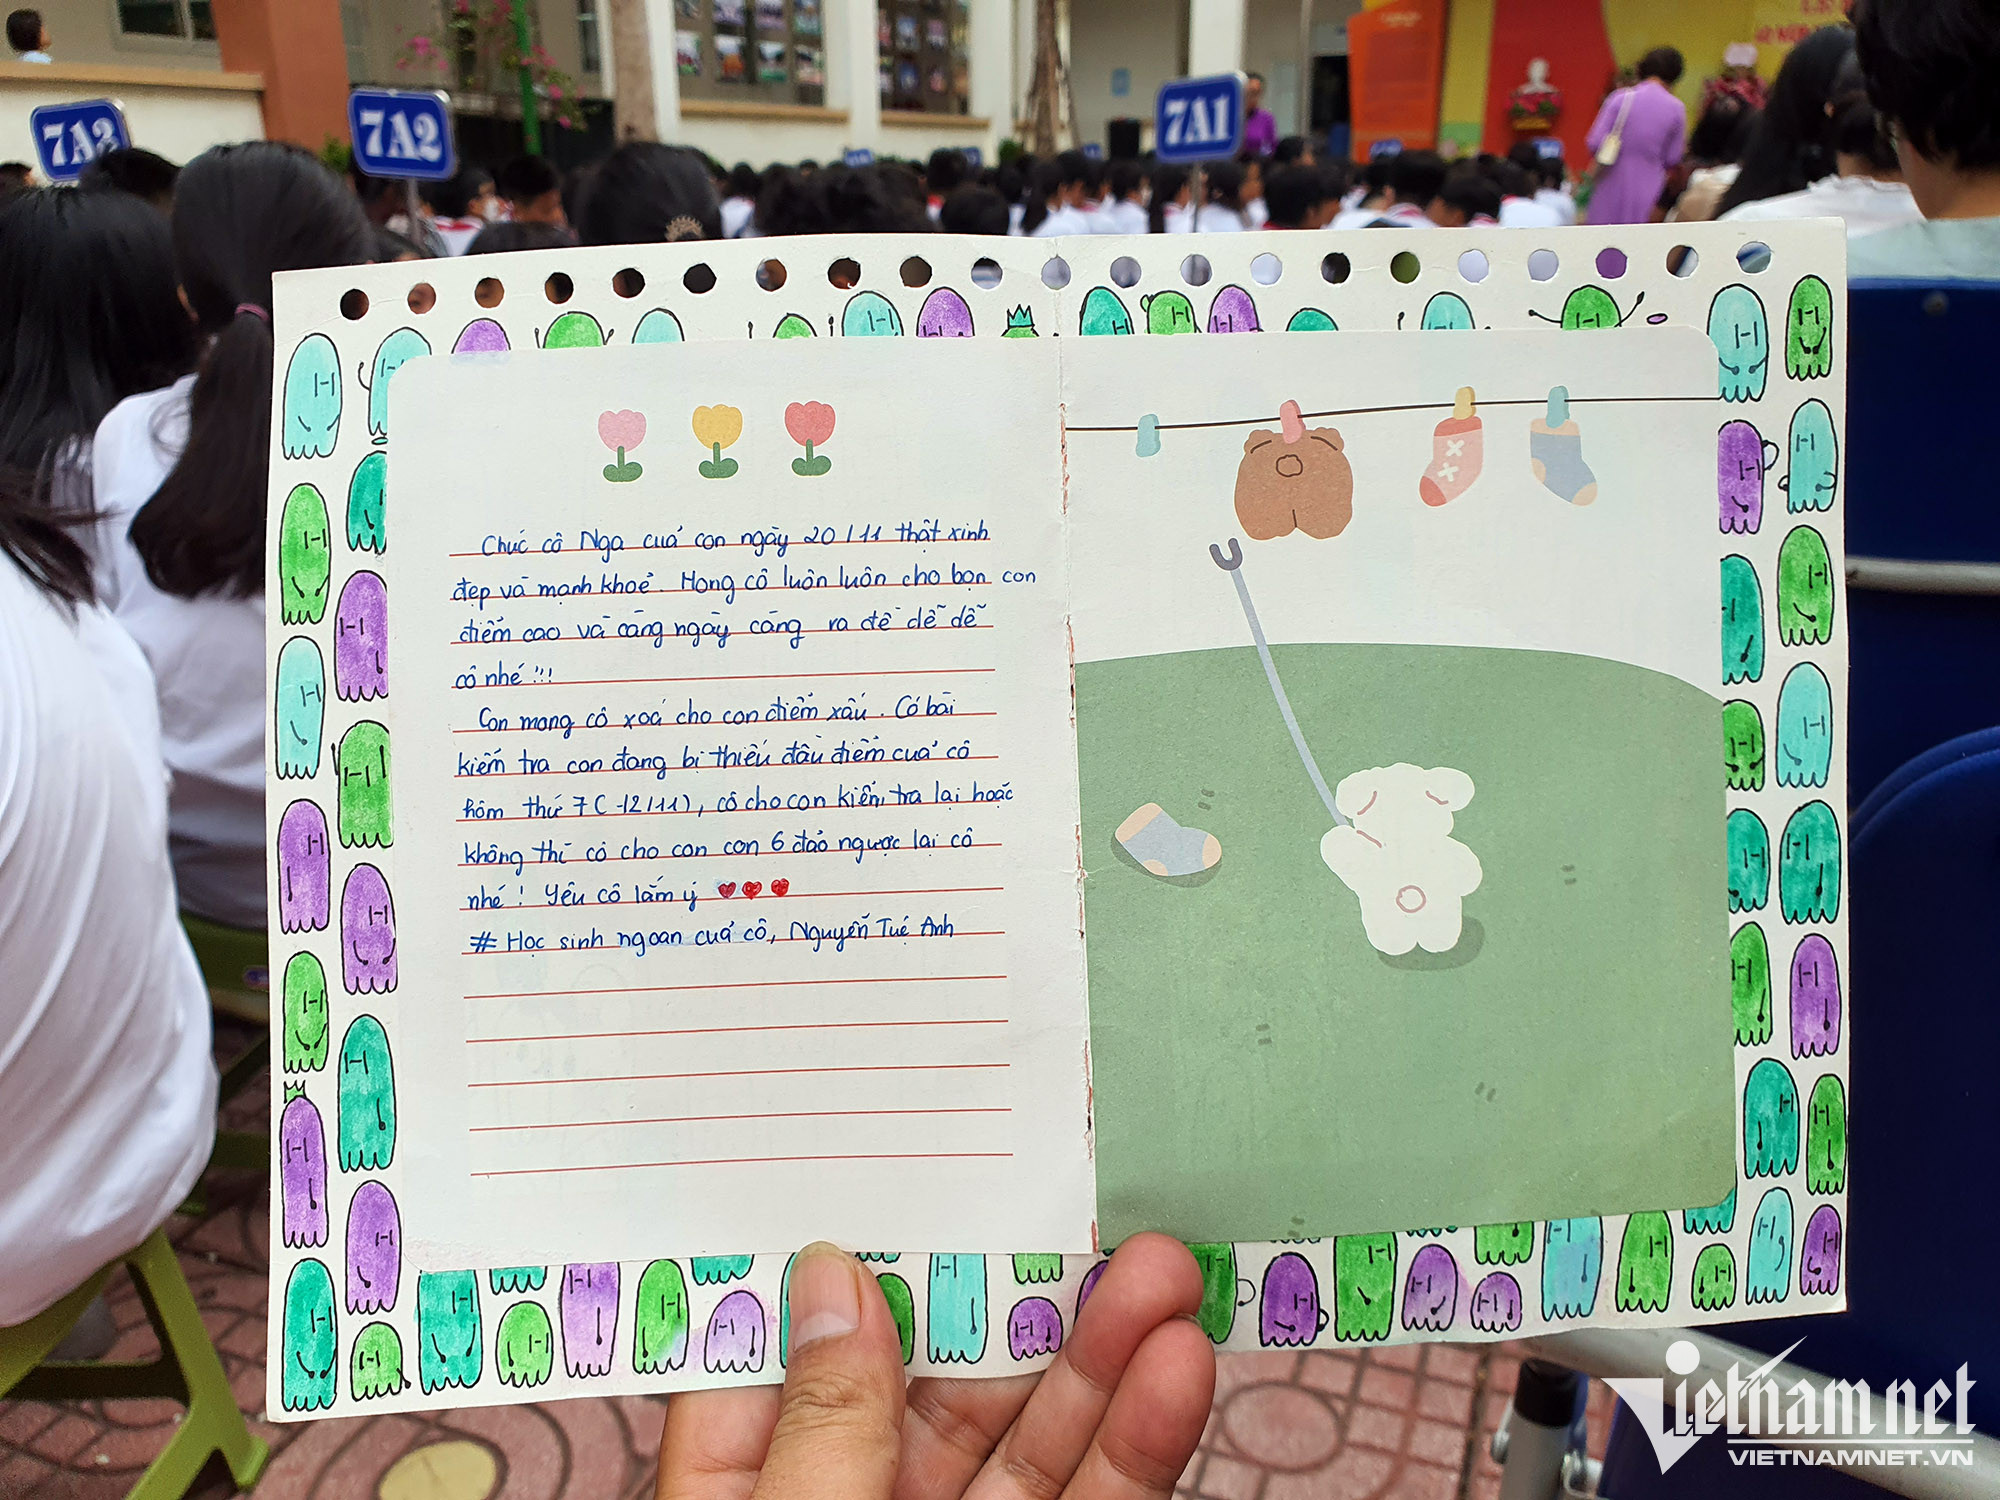 7A3
7A2
7A1
Chúc cô Nga của con ngày 20/11 thật xinh
đẹp và mạnh khoẻ. Mong cô luôn luôn cho bọn con
điểm cao và càng ngày càng ra đề dễ dễ
cô nhé!!!
Con mong cô xoá cho con điểm xấu. Có bài
kiểm tra con đang bị thiếu đầu điểm của cô
hôm thứ 7 (12/11), cô cho con kiểm tra lại hoặc
không thì cô cho con con 6 đảo ngược lại cô
nhé! Yêu cô lắm ý
# Học sinh ngoan của cô, Nguyễn Tuệ Anh
Vietnamnet
VIETNAMNET.VN